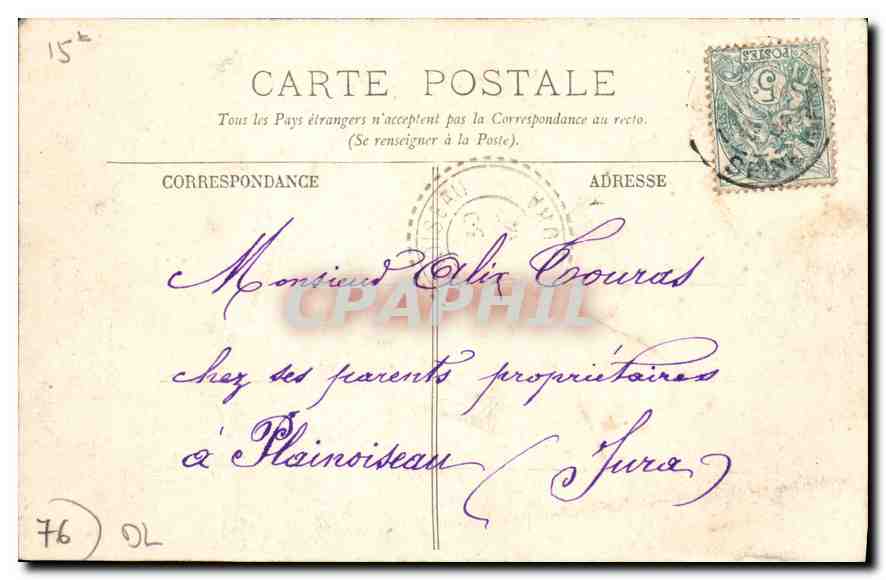 15 k
CARTE POSTALE
Tous les Pays étrangers n'acceptent pas la Correspondance au recto.
(Se renseigner à la Poste).
CORRESPONDANCE
ADRESSE
POSTES
5
JURA
Monsieur Alix Touras
CPAPHIL
chez ses parents propriétaires
à Plainoiseau (Jura)
76) DL